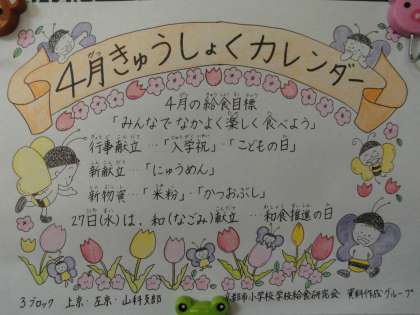 4月きゅうしょくカレンダー
4月の給食目標
「みんなでなかよく楽しく食べよう」
行事献立…「入学祝」・「こどもの日」
新献立…「にゅうめん」
新物資…「米粉」・「かつおぶし」
27日(水)は、和(なごみ)献立…和食推進の日
3ブロック 上京・左京・山科支部
都市小学校学校給食研究会 資料作成グループ